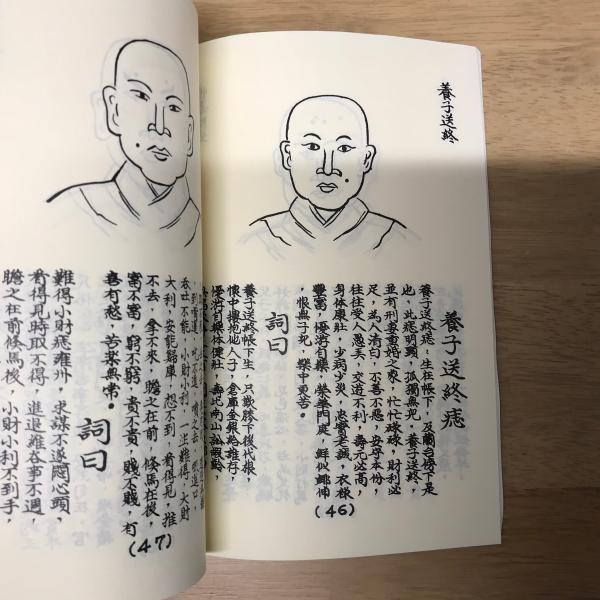 養子送終
養子送終痣
養子送終痣：生在帳下，及蘭台傍下是
也，此痣明顯，孤獨無兒，養子送終，
並有刑妻重婚之象，忙忙碌碌，財利必
足，為人清白，不善不惡，安母本份，
往往受人愚美，交遊不利，壽元必高，
身体康壯，少病少災，忠實老誠，衣祿
豐富，優游自樂，榮華門庭，
，恨無子兒，樂中又苦。
(46)
詞曰
養子送終帳下生，只歲膝下後代根，
懷中摟抱他人子，倉庫金銀給誰存，
優游自樂体健壯，壽比南山
到雪邊，吃不進，噴之去，吸進口
吞吐不能，小財小利，一生難得，大財
大利，安能歸庫，想不到，看得見，推
不去，拿不來，瞻之在前，條馬在後，
富不富，窮不窮，貴不貴，賤不賤，有
喜有愁，苦樂無常。
(47)
詞曰
難得小財痣雍州，求謀不遂悶心頭，
看得見時取不得，進退難吞事不週，
瞻之在前條馬後，小財小利不到手，